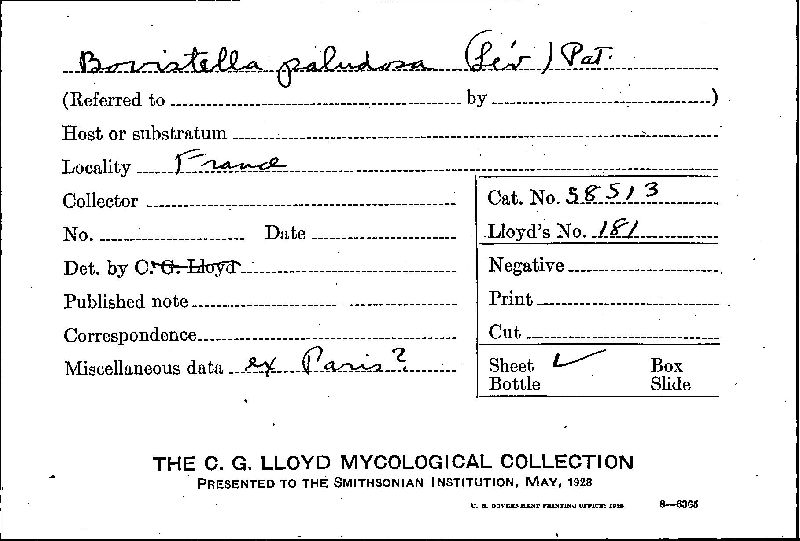 Bovistella paludosa (Lév) Pat.
(Referred to by )
Host or substratum
Locality France
Collector
Cat. No. 58513
No. Date
Lloyd's No. 181
Det. by C. G. Lloyd
Negative
Published note
Print
Correspondence
Cut
Miscellaneous data ex Paris?
Sheet ✓ Box
Bottle Slide
THE C. G. LLOYD MYCOLOGICAL COLLECTION
PRESENTED TO THE SMITHSONIAN INSTITUTION, MAY, 1928
U. S. GOVERNMENT PRINTING OFFICE: 1928 8—6366